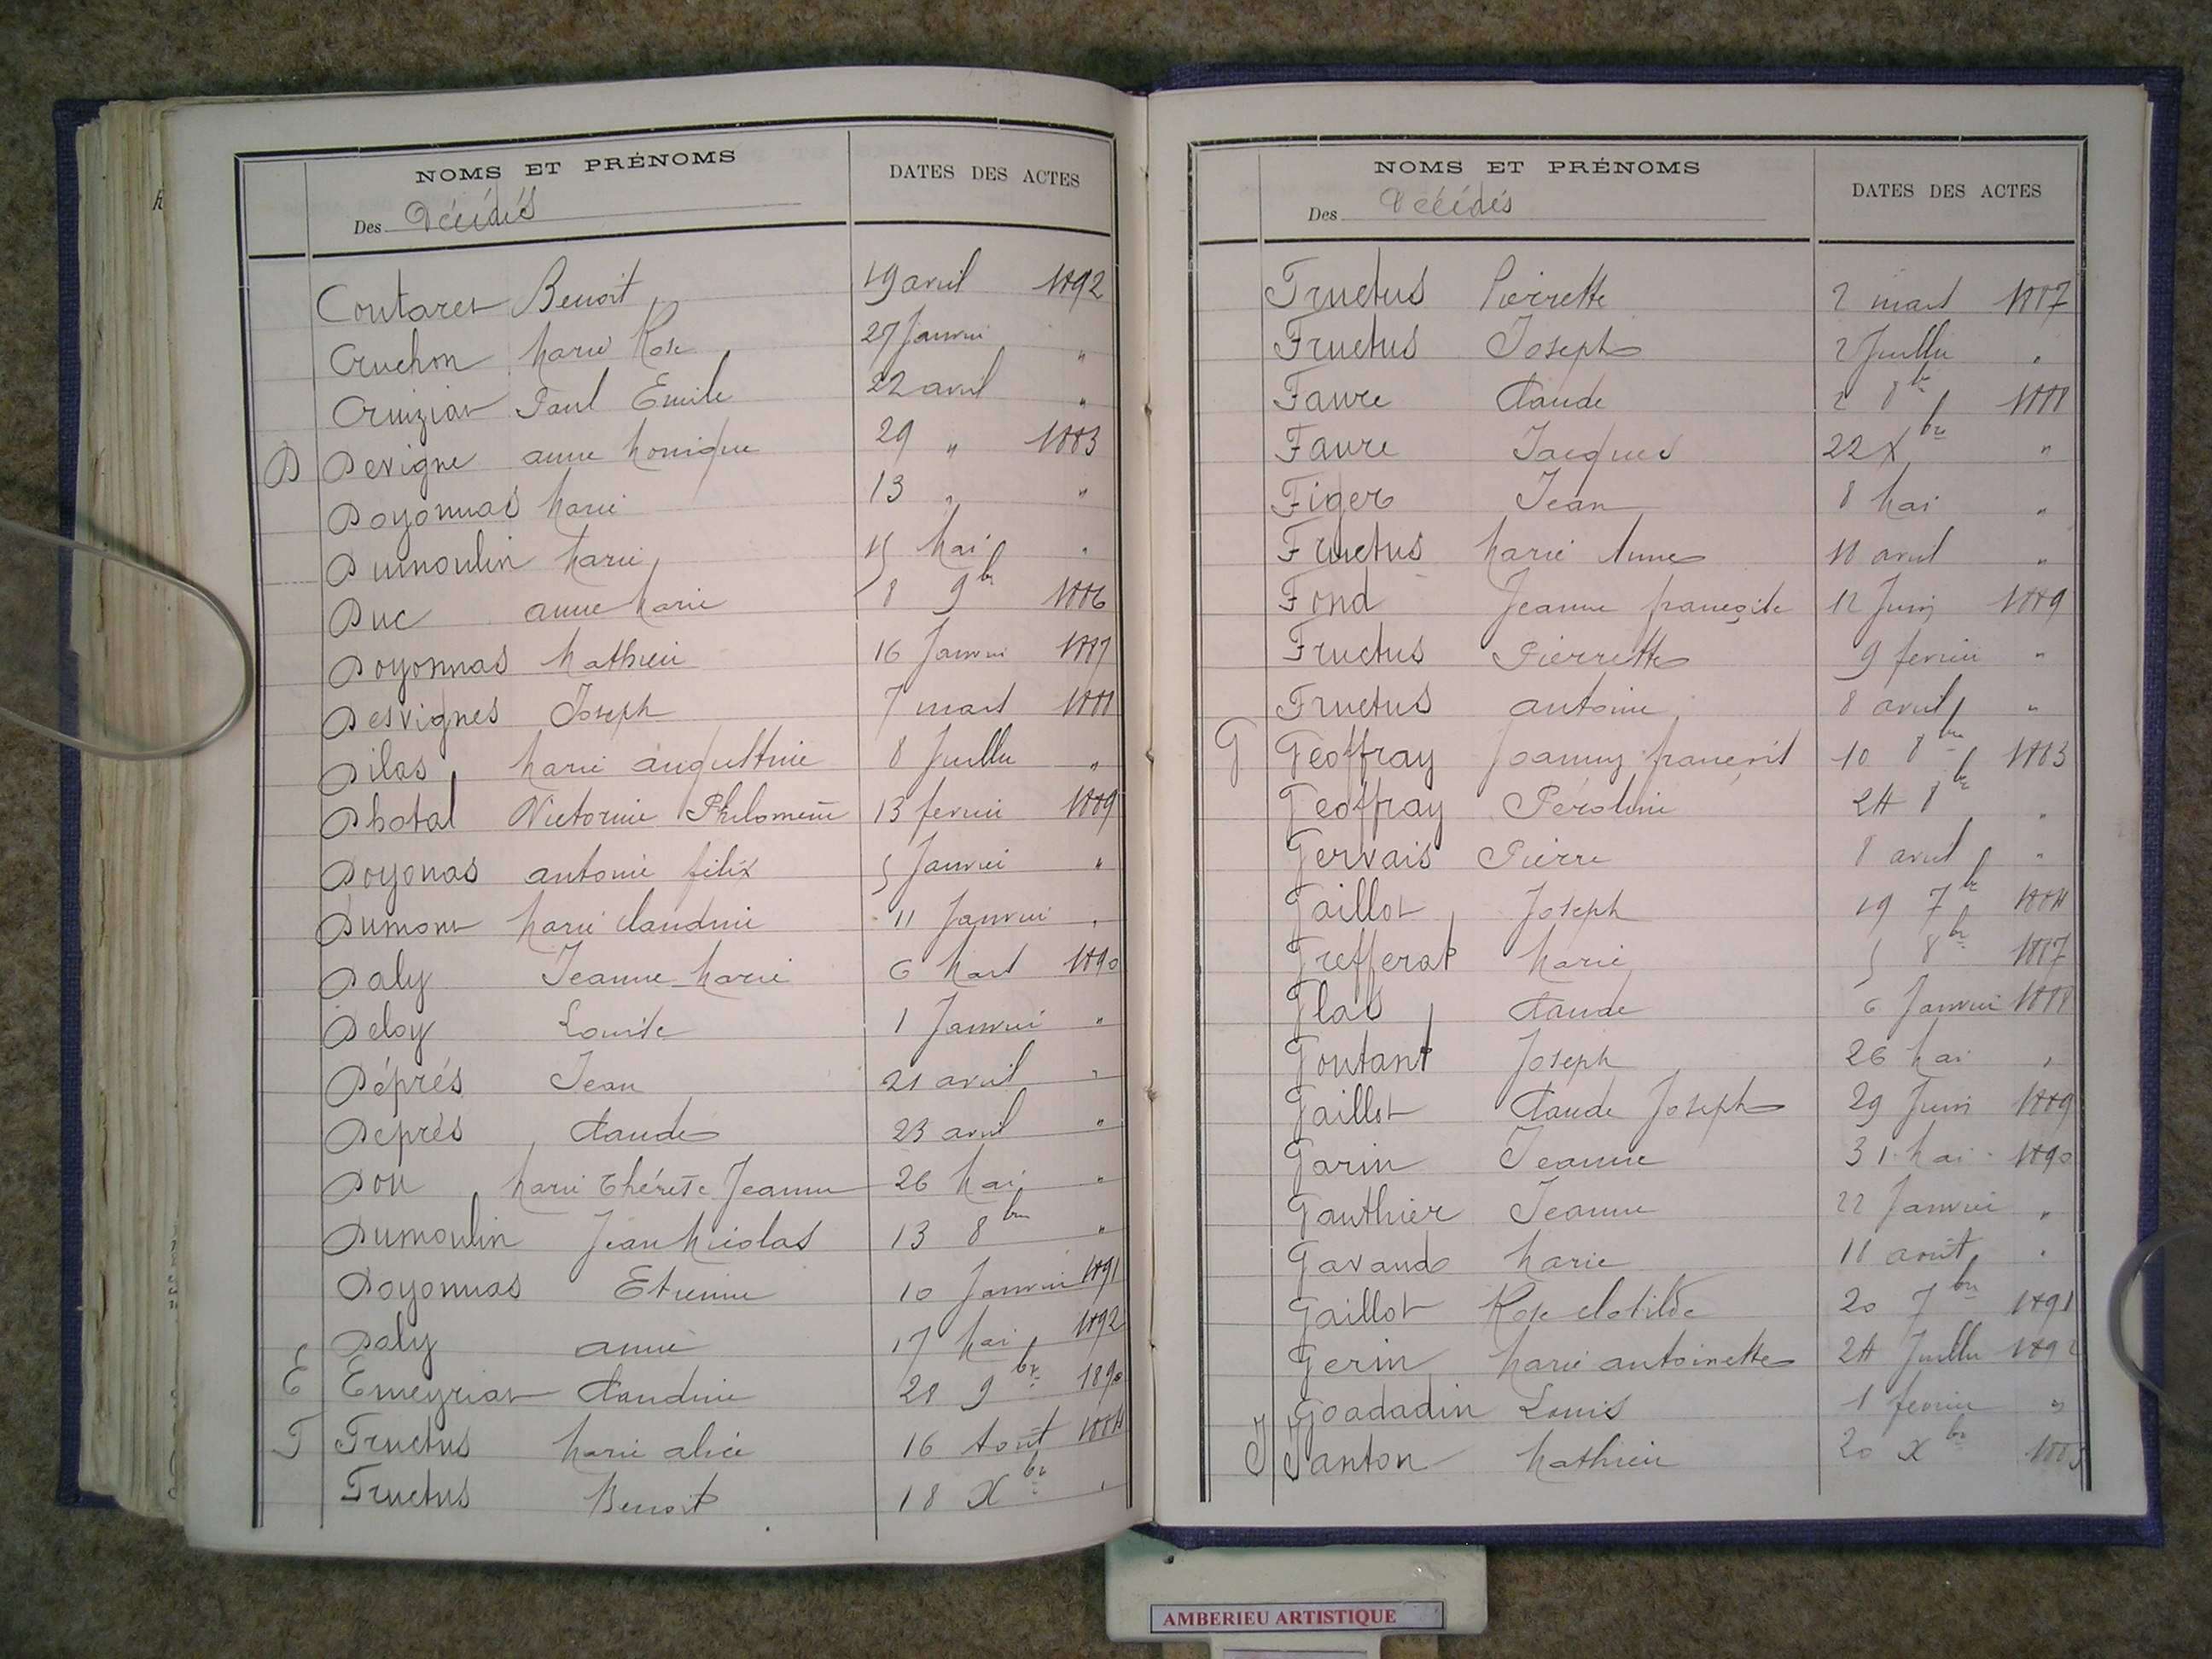 NOMS ET PRÉNOMS DATES DES ACTES
Des Décédés
Coutaret Benoit 19 avril 1892
Cruchon Marie Rose 27 Janvier "
Cruiziat Paul Emile 22 avril "
D Devigne anne Monique 29 " 1883
Doyonnas Marie 13 " "
Dumoulin Marie 15 Mai "
Duc anne Marie 8 9br 1886
Doyonnas Mathieu 16 Janvier 1887
Desvignes Joseph 7 mars 1888
Dilas Marie augustine 8 Juillet "
Dhotal Victorine Philomène 13 fevrier 1889
Doyonas antoine félix 5 Janvier "
Dumont Marie Claudine 11 Janvier "
Daly Jeanne Marie 6 Mars 1890
Deloy Louise 1 Janvier "
Déprés Jean 21 avril "
Deprés Claude 23 avril "
Dou Marie Thérèse Jeanne 26 Mai "
Dumoulin Jean Nicolas 13 8bre "
Doyonnas Etienne 10 Janvier 1891
Daly anne 17 Mai 1892
E Emeyriat Claudine 28 9br 1890
F Fructus Marie alice 16 Août 1884
Fructus Benoit 18 Xbr "
NOMS ET PRÉNOMS DATES DES ACTES
Des Décédés
Fructus Pierrette 2 mars 1887
Fructus Joseph 2 Juillet "
Faure Claude 2 8br 1888
Faure Jacques 22 Xbre "
Figer Jean 8 Mai "
Fructus Marie Anne 18 avril "
Fond Jeanne françoise 12 Juin 1889
Fructus Pierrette 9 fevrier "
Fructus antoine 8 avril "
G Geoffray Joanny françois 10 8bre 1883
Geoffray Péroline 24 8br "
Gervais Pierre 8 avril "
Gaillot Joseph 19 7br 1884
Grefferat Marie 5 8br 1887
Glas Claude 6 Janvier 1888
Goutant Joseph 26 Mai "
Gaillot Claude Joseph 29 Juin 1889
Garin Jeanne 31 Mai 1890
Gauthier Jeanne 22 Janvier "
Gavand Marie 18 août "
Gaillot Rose clotilde 20 7bre 1891
Gerin Marie antoinette 24 Juillet 1892
Goadadin Louis 1 fevrier "
J Janton Mathieu 20 Xbr 1883
AMBERIEU ARTISTIQUE